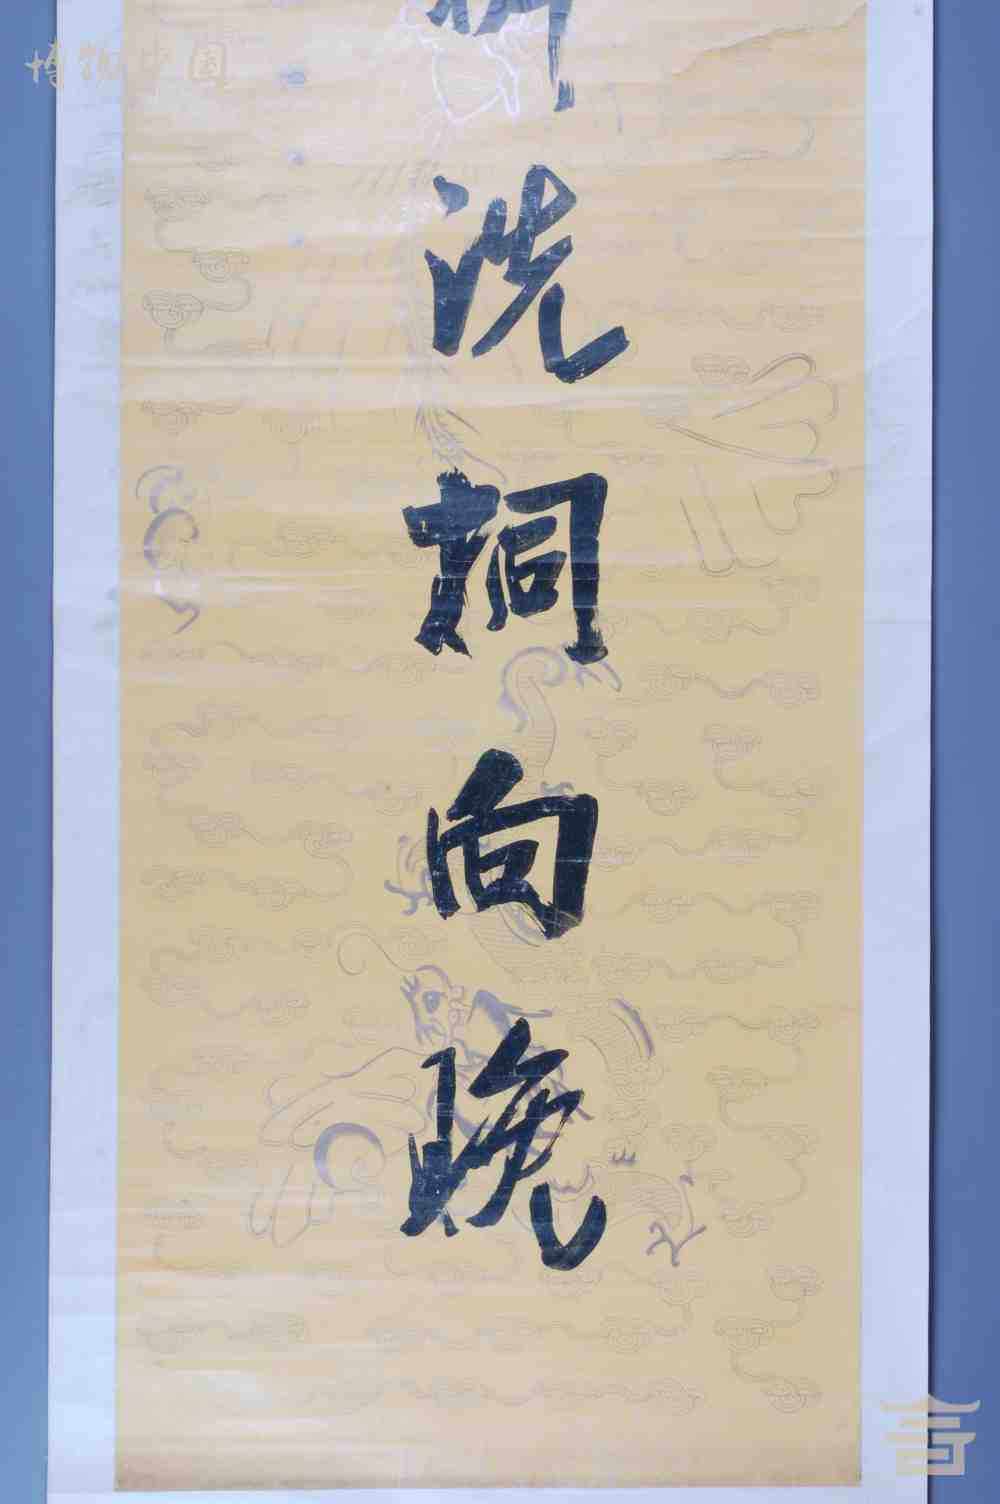 博物中国
洗桐向晚